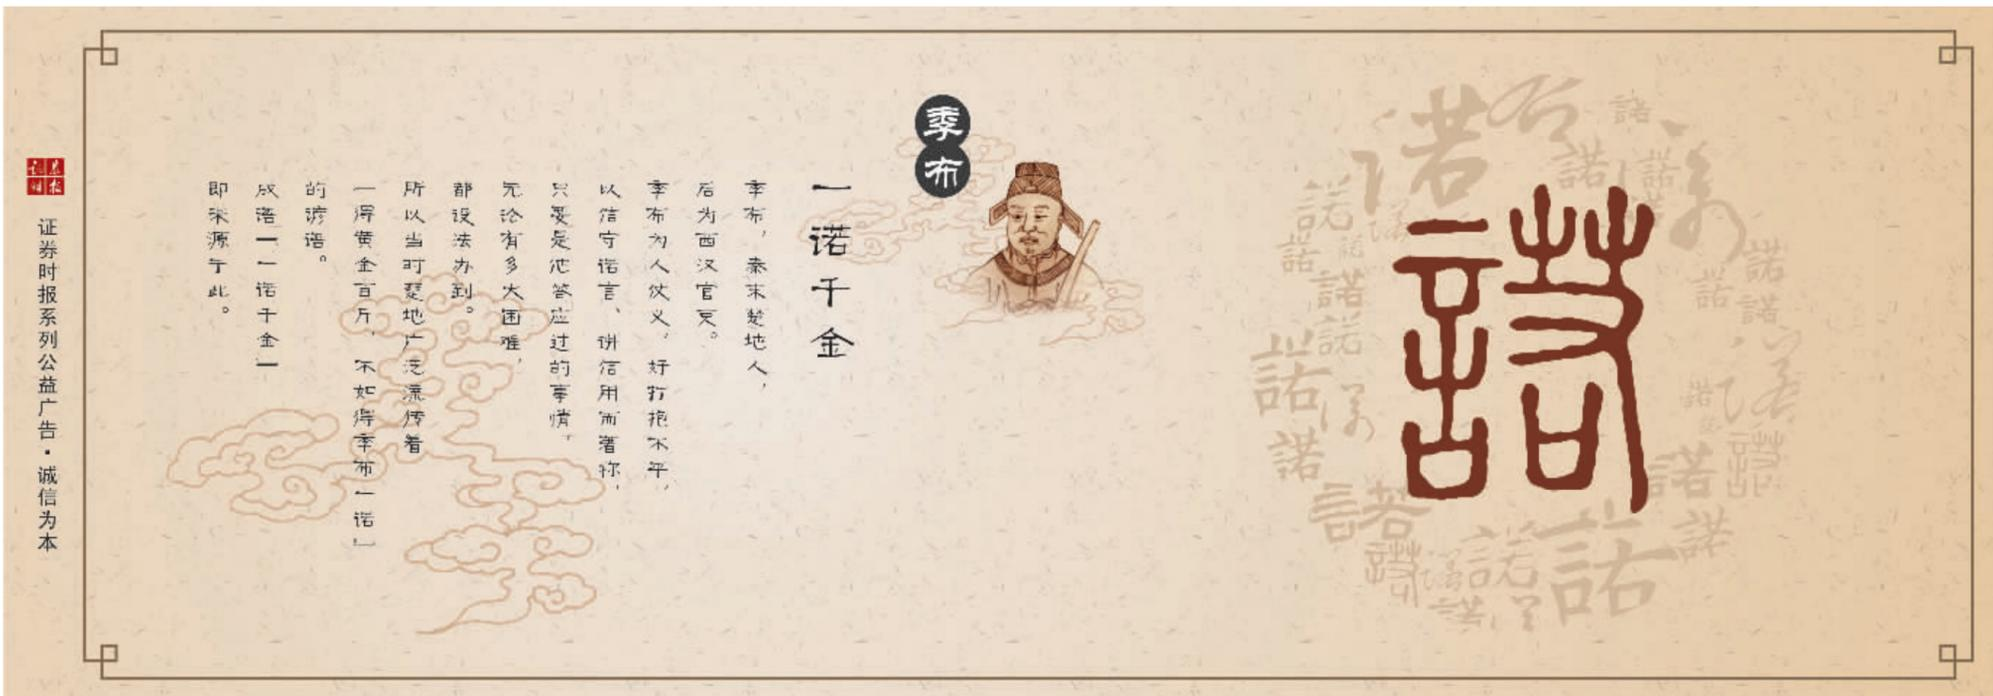 諾
季布
一诺千金
季布，秦末楚地人，
后为西汉官吏。
季布为人仗义，好打抱不平，
以信守诺言、讲信用而著称，
只要是他答应过的事情，
无论有多大困难，
都设法办到。
所以当时楚地广泛流传着
「得黄金百斤，不如得季布一诺」
的谚语。
成语「一诺千金」
即来源于此。
证券时报系列公益广告·诚信为本